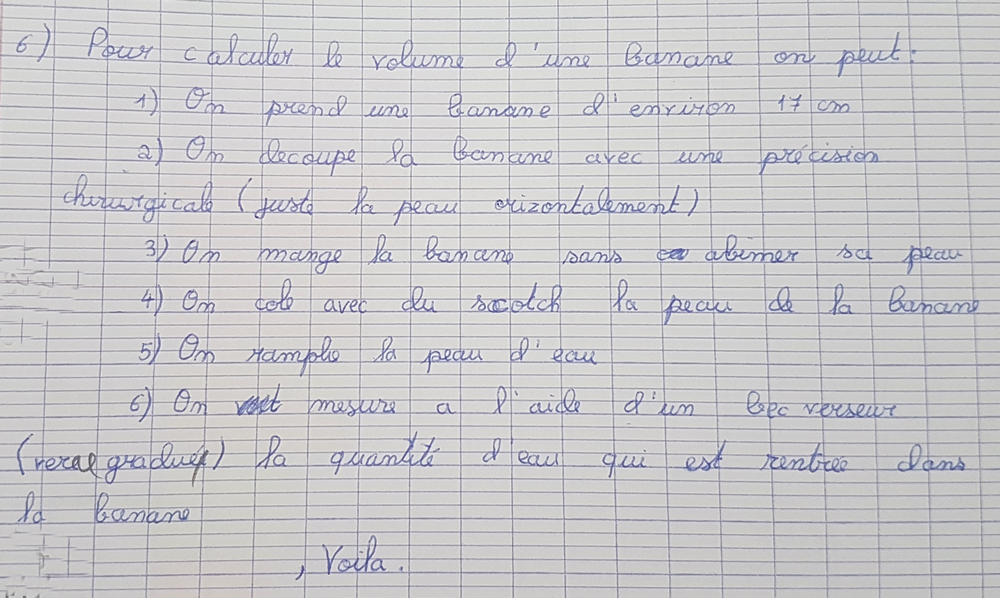 6) Pour calculer le volume d'une banane on peut:
1) On prend une banane d'environ 17 cm
2) On decoupe la banane avec une précision
chirurgicale (juste la peau orizontalement)
3) On mange la banane sans abimer sa peau
4) On cole avec du scotch la peau de la banane
5) On ramplie la peau d'eau
6) On mesure a l'aide d'un bec verseur
(verre graduer) la quantité d'eau qui est rentrée dans
la banane
, Voila.